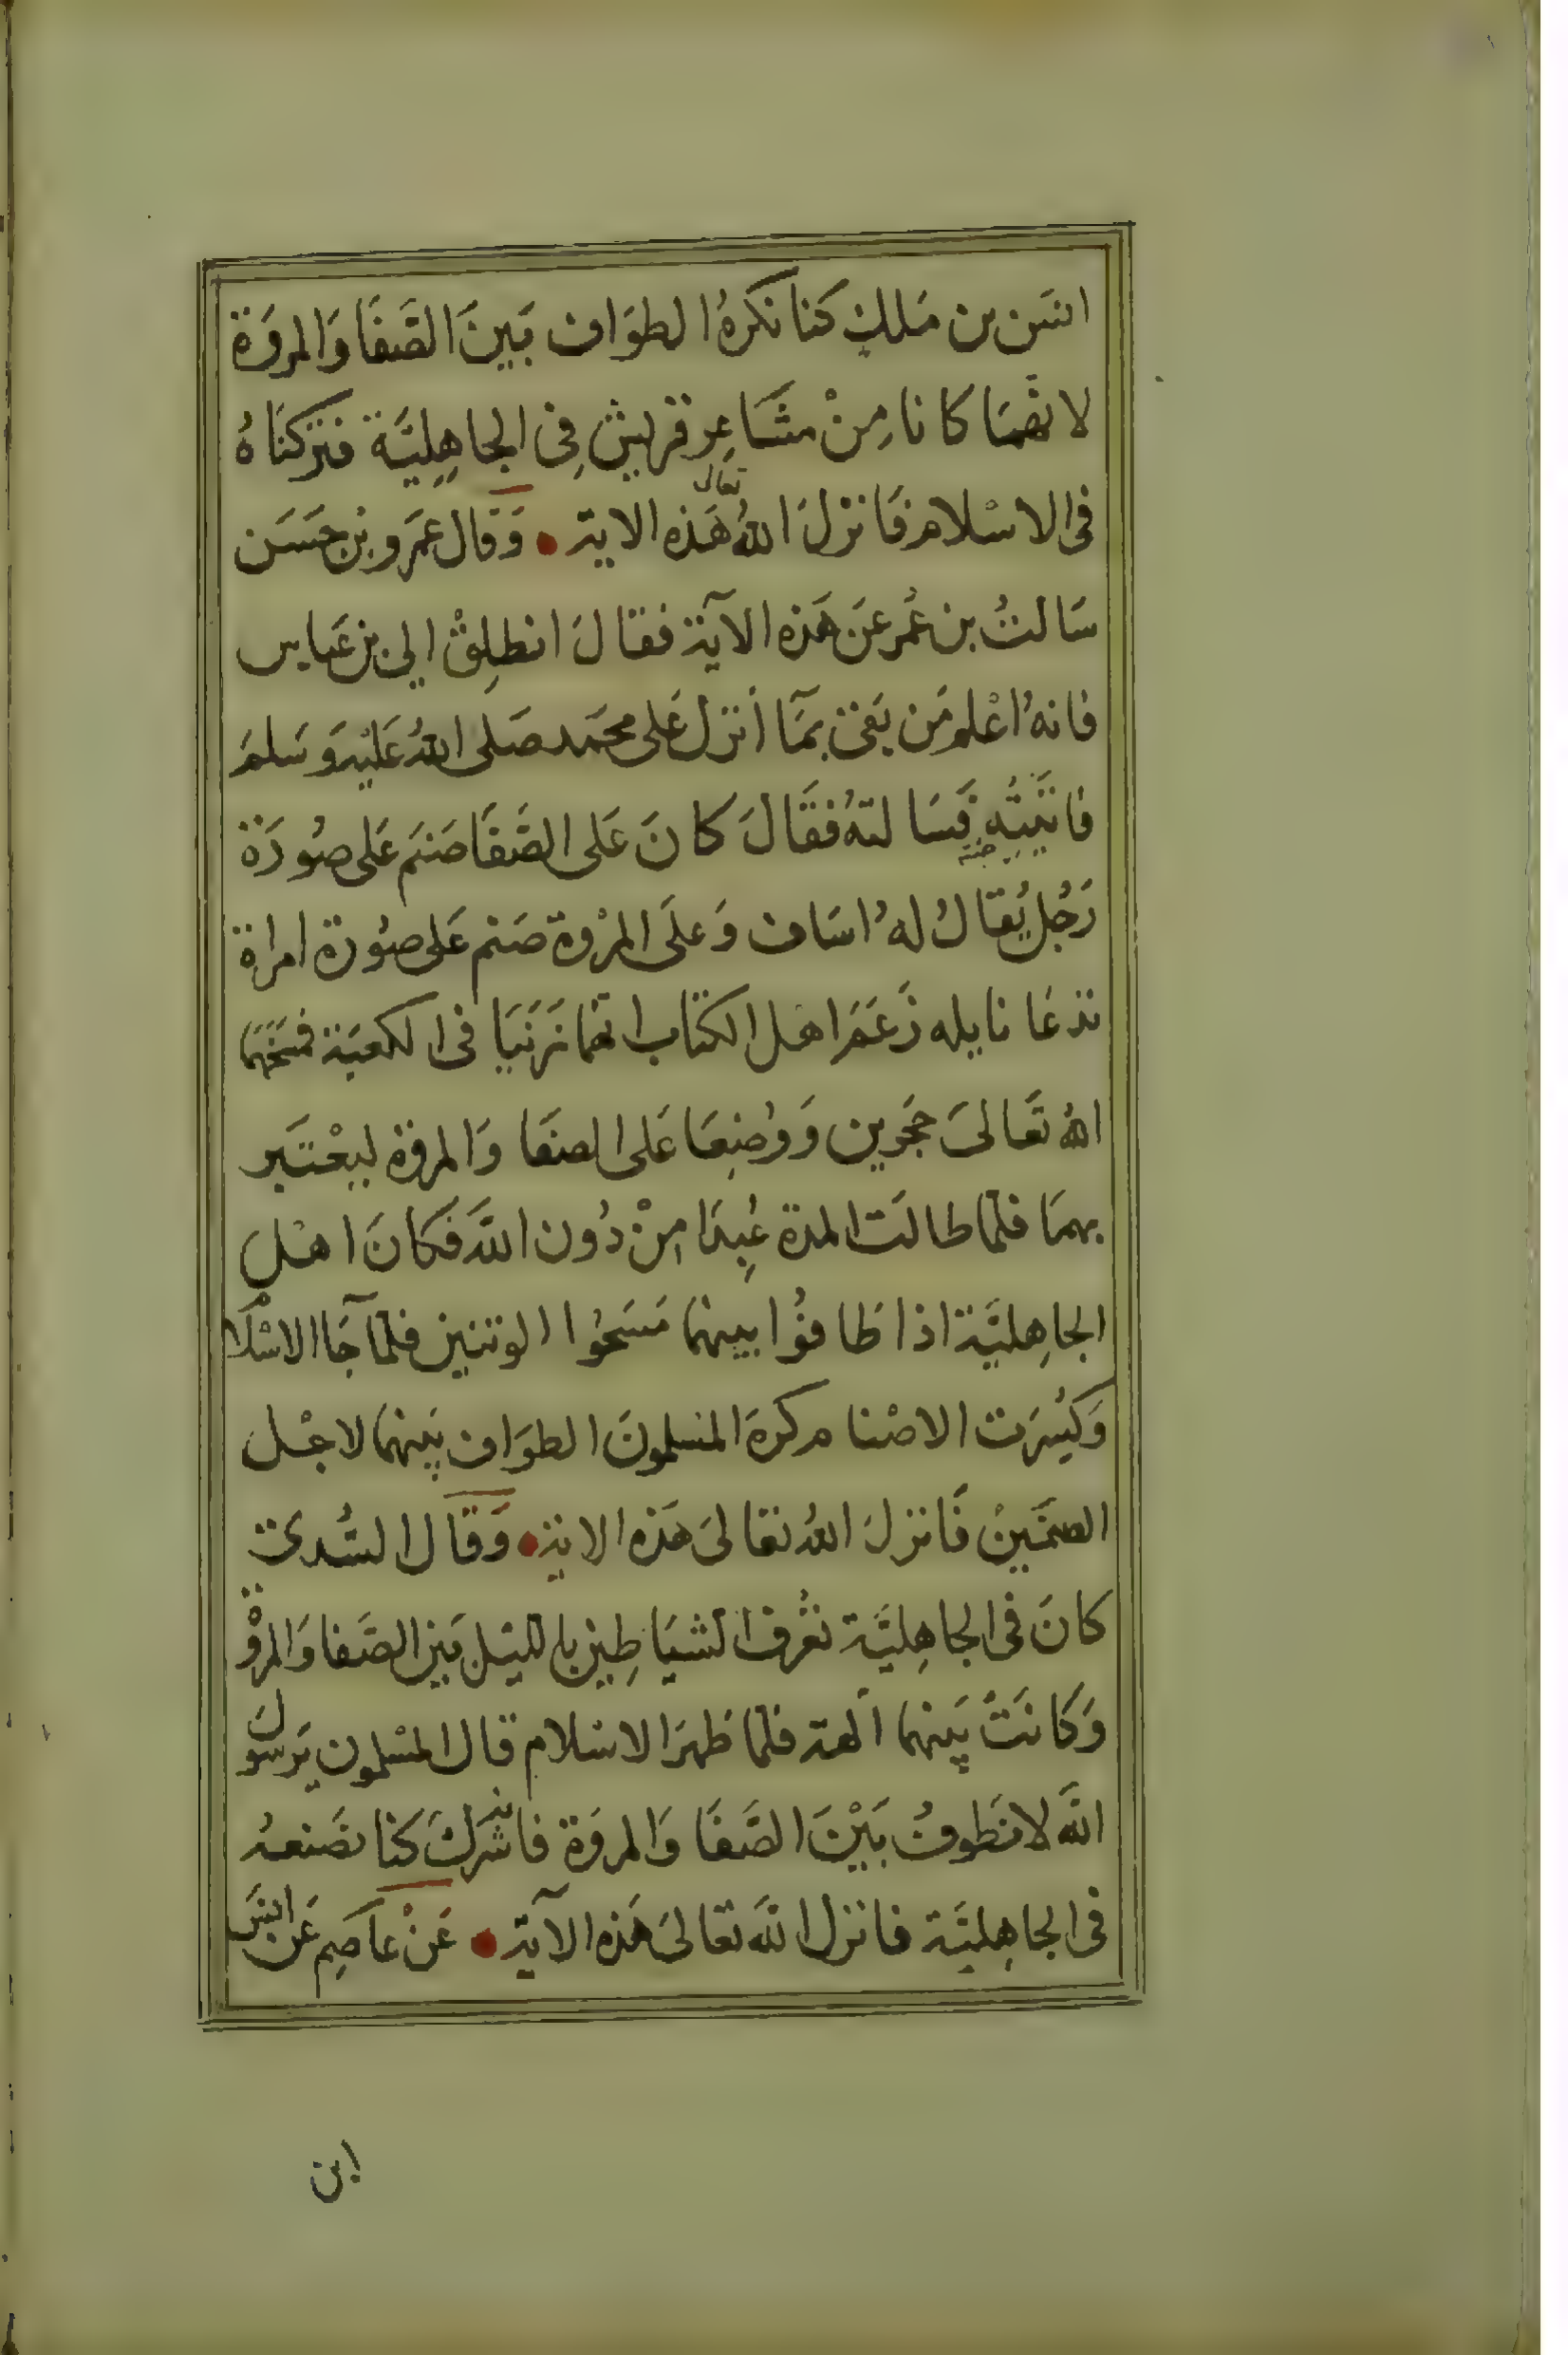 انس بن ملك كنا نكره الطواف بين الصَّفَا وَالمروَة
لانهمَا كانا مِنْ مشَاعِر قريش فِى الجاهِليَّة فتركنَاهُ
فى الاسْلام فَانزلَ اللهُ تعالى هَذه الاية • وَقال عمَرو بن حسَن
سَالتُ بن عُمر عَن هَذه الآية فقالَ انطلِقْ الى بن عَباس
فانهُ اعْلم مَن بَقى بمَا أنزل عَلى محمَد صَلى اللهُ عَليْه وَسَلمَ
فاتَيتُه فسَالتهُ فقَالَ كانَ عَلى الصَّفَا صَنم عَلى صُورَة
رَجُل يُقالُ لهُ اسَاف وَعلَى المرْوة صَنم عَلى صُورة امراة
تدعَا نايله زَعَمَ اهل الكتاب انهما زَنَيَا فى الكعبَة فمسَخهمَا
الله تعَالىَ حجَرين وَوُضِعَا عَلى الصفَا وَالمروة ليعْتَبر
بهمَا فلما طالَت المدة عُبِدَا مِنْ دُون اللَّه فَكانَ اهْل
الجاهِليَّة اذا طَافوُا بينهما مَسَحُوا الوثنين فلما جَا الاسْلام
وَكُسِرَت الاصْنام كرهَ المسلمونَ الطوَاف بَينهما لاجْل
الصنمَينْ فَانزلَ اللهُ تعَالىَ هَذه الاية • وَقَال السُّدىّ
كانَ فى الجاهِليَّة تعْرف الشيَاطِين بالليَل بَين الصَّفا وَالمروْة
وَكَانَتْ بَينهما آلهة فلما ظهَرَ الاسْلام قال المسْلمون يَرسول
اللَّه لانطوفُ بَيْنَ الصَّفَا وَالمروَة فانه شركَ كنا نصَنعهُ
فى الجاهِليَّة فانزل اللَّه تعَالىَ هَذه الآية • عَنْ عاَصِم عَن انس
ابن